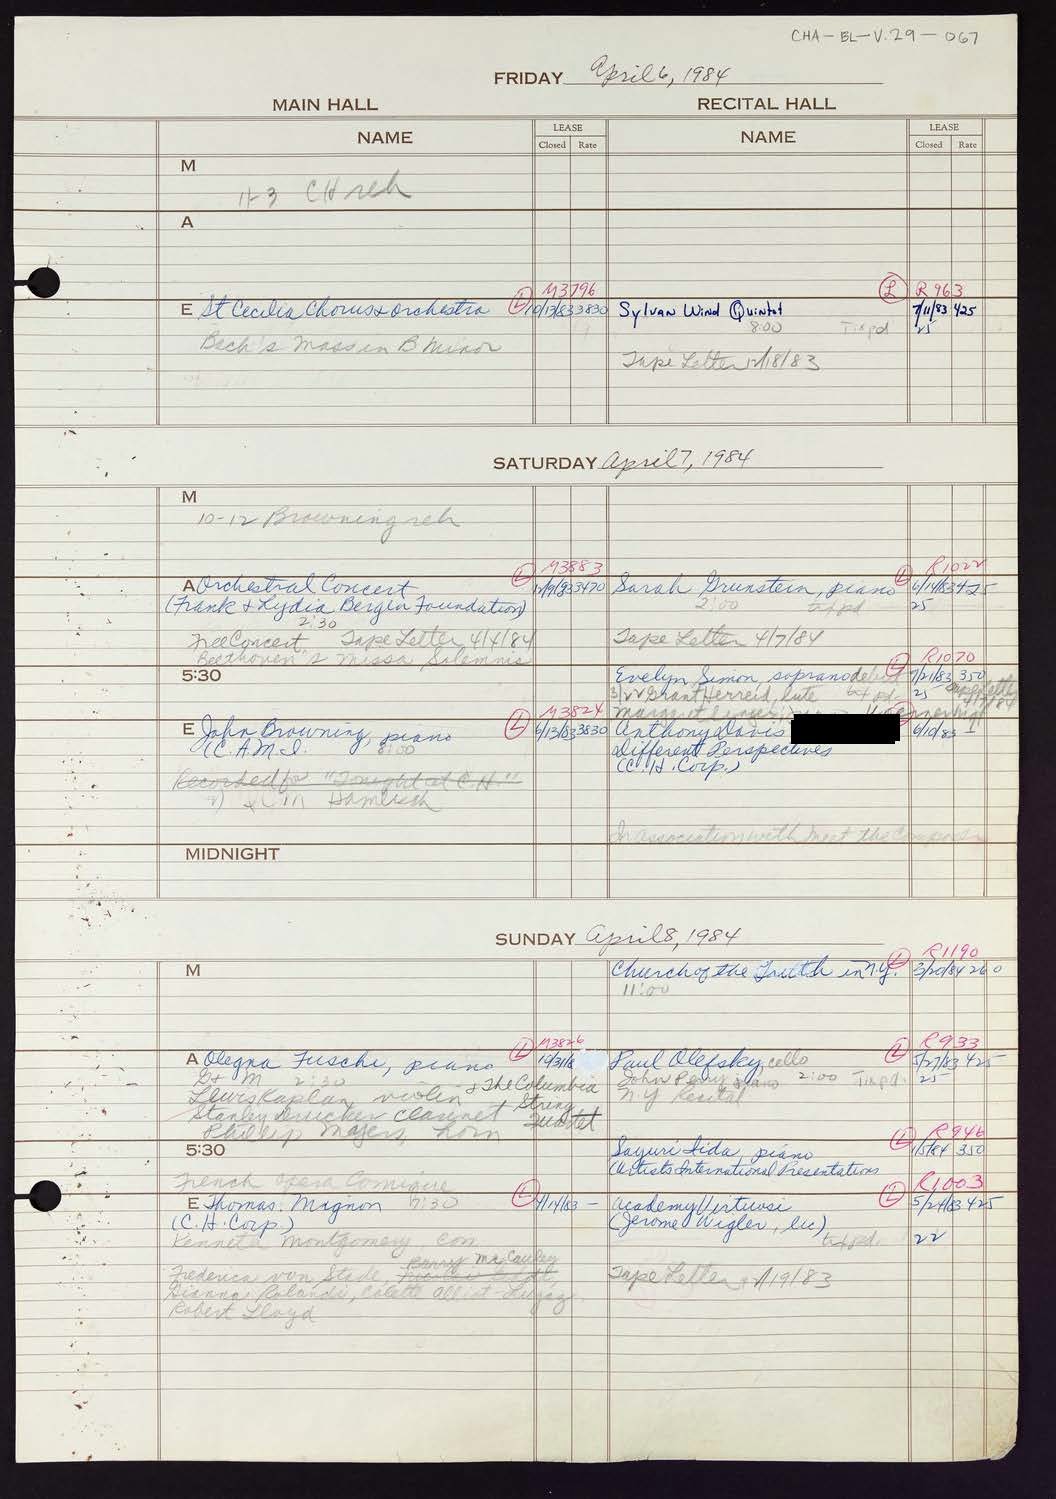 CHA-BL-V.29-067
FRIDAY April 6, 1984
MAIN HALL RECITAL HALL
NAME LEASE Closed Rate NAME LEASE Closed Rate
M
11-3 CH reh
A
M3796 R963
E St Cecilia Chorus & Orchestra L 10/13/83 3830 Sylvan Wind Quintet L 7/11/83 425
8:00 Tix pd 25
Bach's Mass in B Minor
Tape Letter 12/18/83
SATURDAY April 7, 1984
M
10-12 Browning reh
M3883 R1022
A Orchestral Concert L 12/9/83 3470 Sarah Grunstein, piano L 6/14/83 425
(Frank & Lydia Bergen Foundation) 2:00 tix pd 25
2:30
Free Concert Tape Letter 4/4/84 Tape Letter 4/7/84
Beethoven's Missa Solemnis
R1070
5:30 Evelyn Simon, soprano debut L 7/21/83 350
Grant Herreid, lute tix pd 25 Tape Letter 4/7/84
M3824
E John Browning, piano L 6/13/83 3830 Anthony Davis 6/10/83
(C.A.M.I.) 8:00 Different Perspectives
(C.H. Corp.)
Recorded for "Tonight at C.H."
Hamlisch
In association with Meet the Composer
MIDNIGHT
SUNDAY April 8, 1984
R1190
M Church of the Truth in N.Y. L 3/20/84 260
11:00
M3826 R933
A Olegna Fuschi, piano L 10/31/8 Paul Olefsky, cello L 5/27/83 425
G+M 2:30 & The Columbia John Perry piano 2:00 Tix pd. 25
Lewis Kaplan violin String N.Y. Recital
Stanley Drucker clarinet Quartet
Phillip Myers, horn
R946
5:30 Sayuri Iida, piano L 1/5/84 350
(Artists International Presentations
French Opera Comique R1003
E Thomas: Mignon 7:30 L 4/14/83 - Academy Virtuosi L 5/24/83 425
(C.H. Corp.) (Jerome Wigler, lic)
Kenneth Montgomery con tix pd. 22
Barry McCauley
Frederica von Stade,
Gianna Rolandi, Colette Alliot-Lugaz, Tape Letter 12/19/83
Robert Lloyd